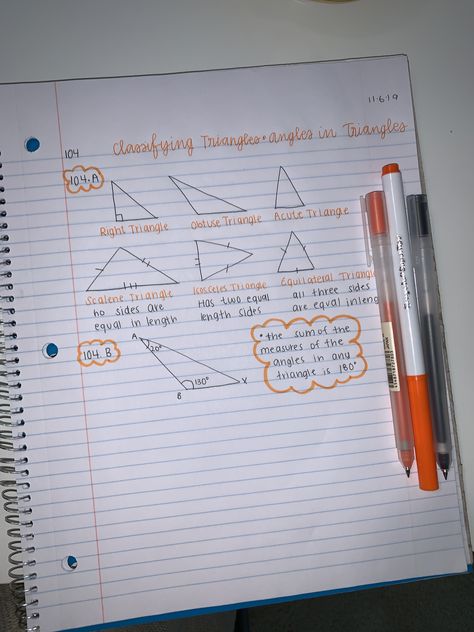 11.6.19
Classifying Triangles • angles in Triangles
104
104.A
Right Triangle
Obtuse Triangle
Acute Triangle
Scalene Triangle
no sides are
equal in length
Isosceles Triangle
Has two equal
length sides
Equilateral Triangle
all three sides
are equal in leng
104.B
A
20°
130°
B
X
• the sum of the
measures of the
angles in any
triangle is 180°